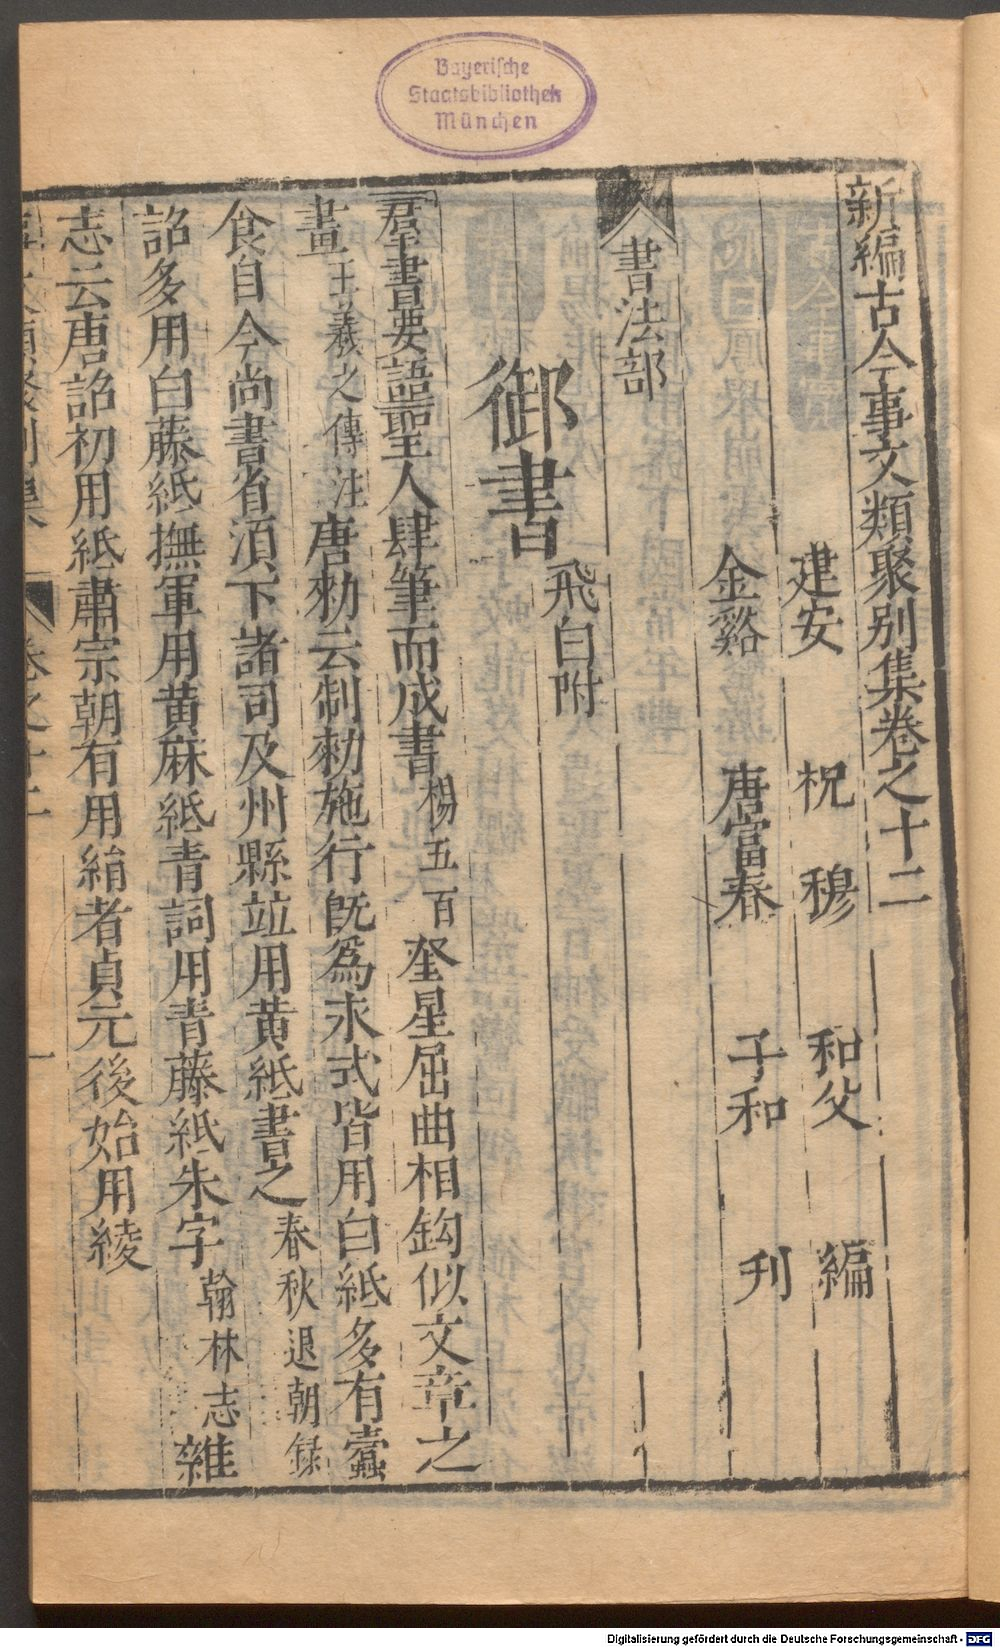 Bayerische
Staatsbibliothek
München
新編古今事文類聚別集卷之十二
建安 祝 穆 和父 編
金谿 唐富春 子和 刋
書法部
御書 飛白附
羣書要語聖人肆筆而成書 楊五百 奎星屈曲相鈎似文章之
畫 王羲之傳注 唐勑云制勑施行旣爲永式皆用白紙多有蠧
食自今尚書省湏下諸司及州縣竝用黄紙書之 春秋退朝録
詔多用白藤紙撫軍用黄麻紙青詞用青藤紙朱字 翰林志 雜
志云唐詔初用紙肅宗朝有用絹者貞元後始用綾
卷之十二
一
Digitalisierung gefördert durch die Deutsche Forschungsgemeinschaft - DFG